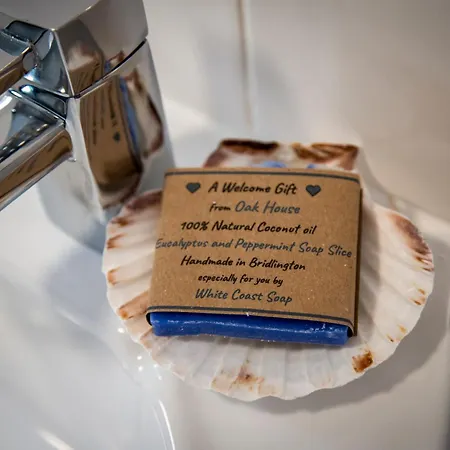 A Welcome Gift
from Oak House
100% Natural Coconut oil
Eucalyptus and Peppermint Soap Slice
Handmade in Bridlington
especially for you by
White Coast Soap